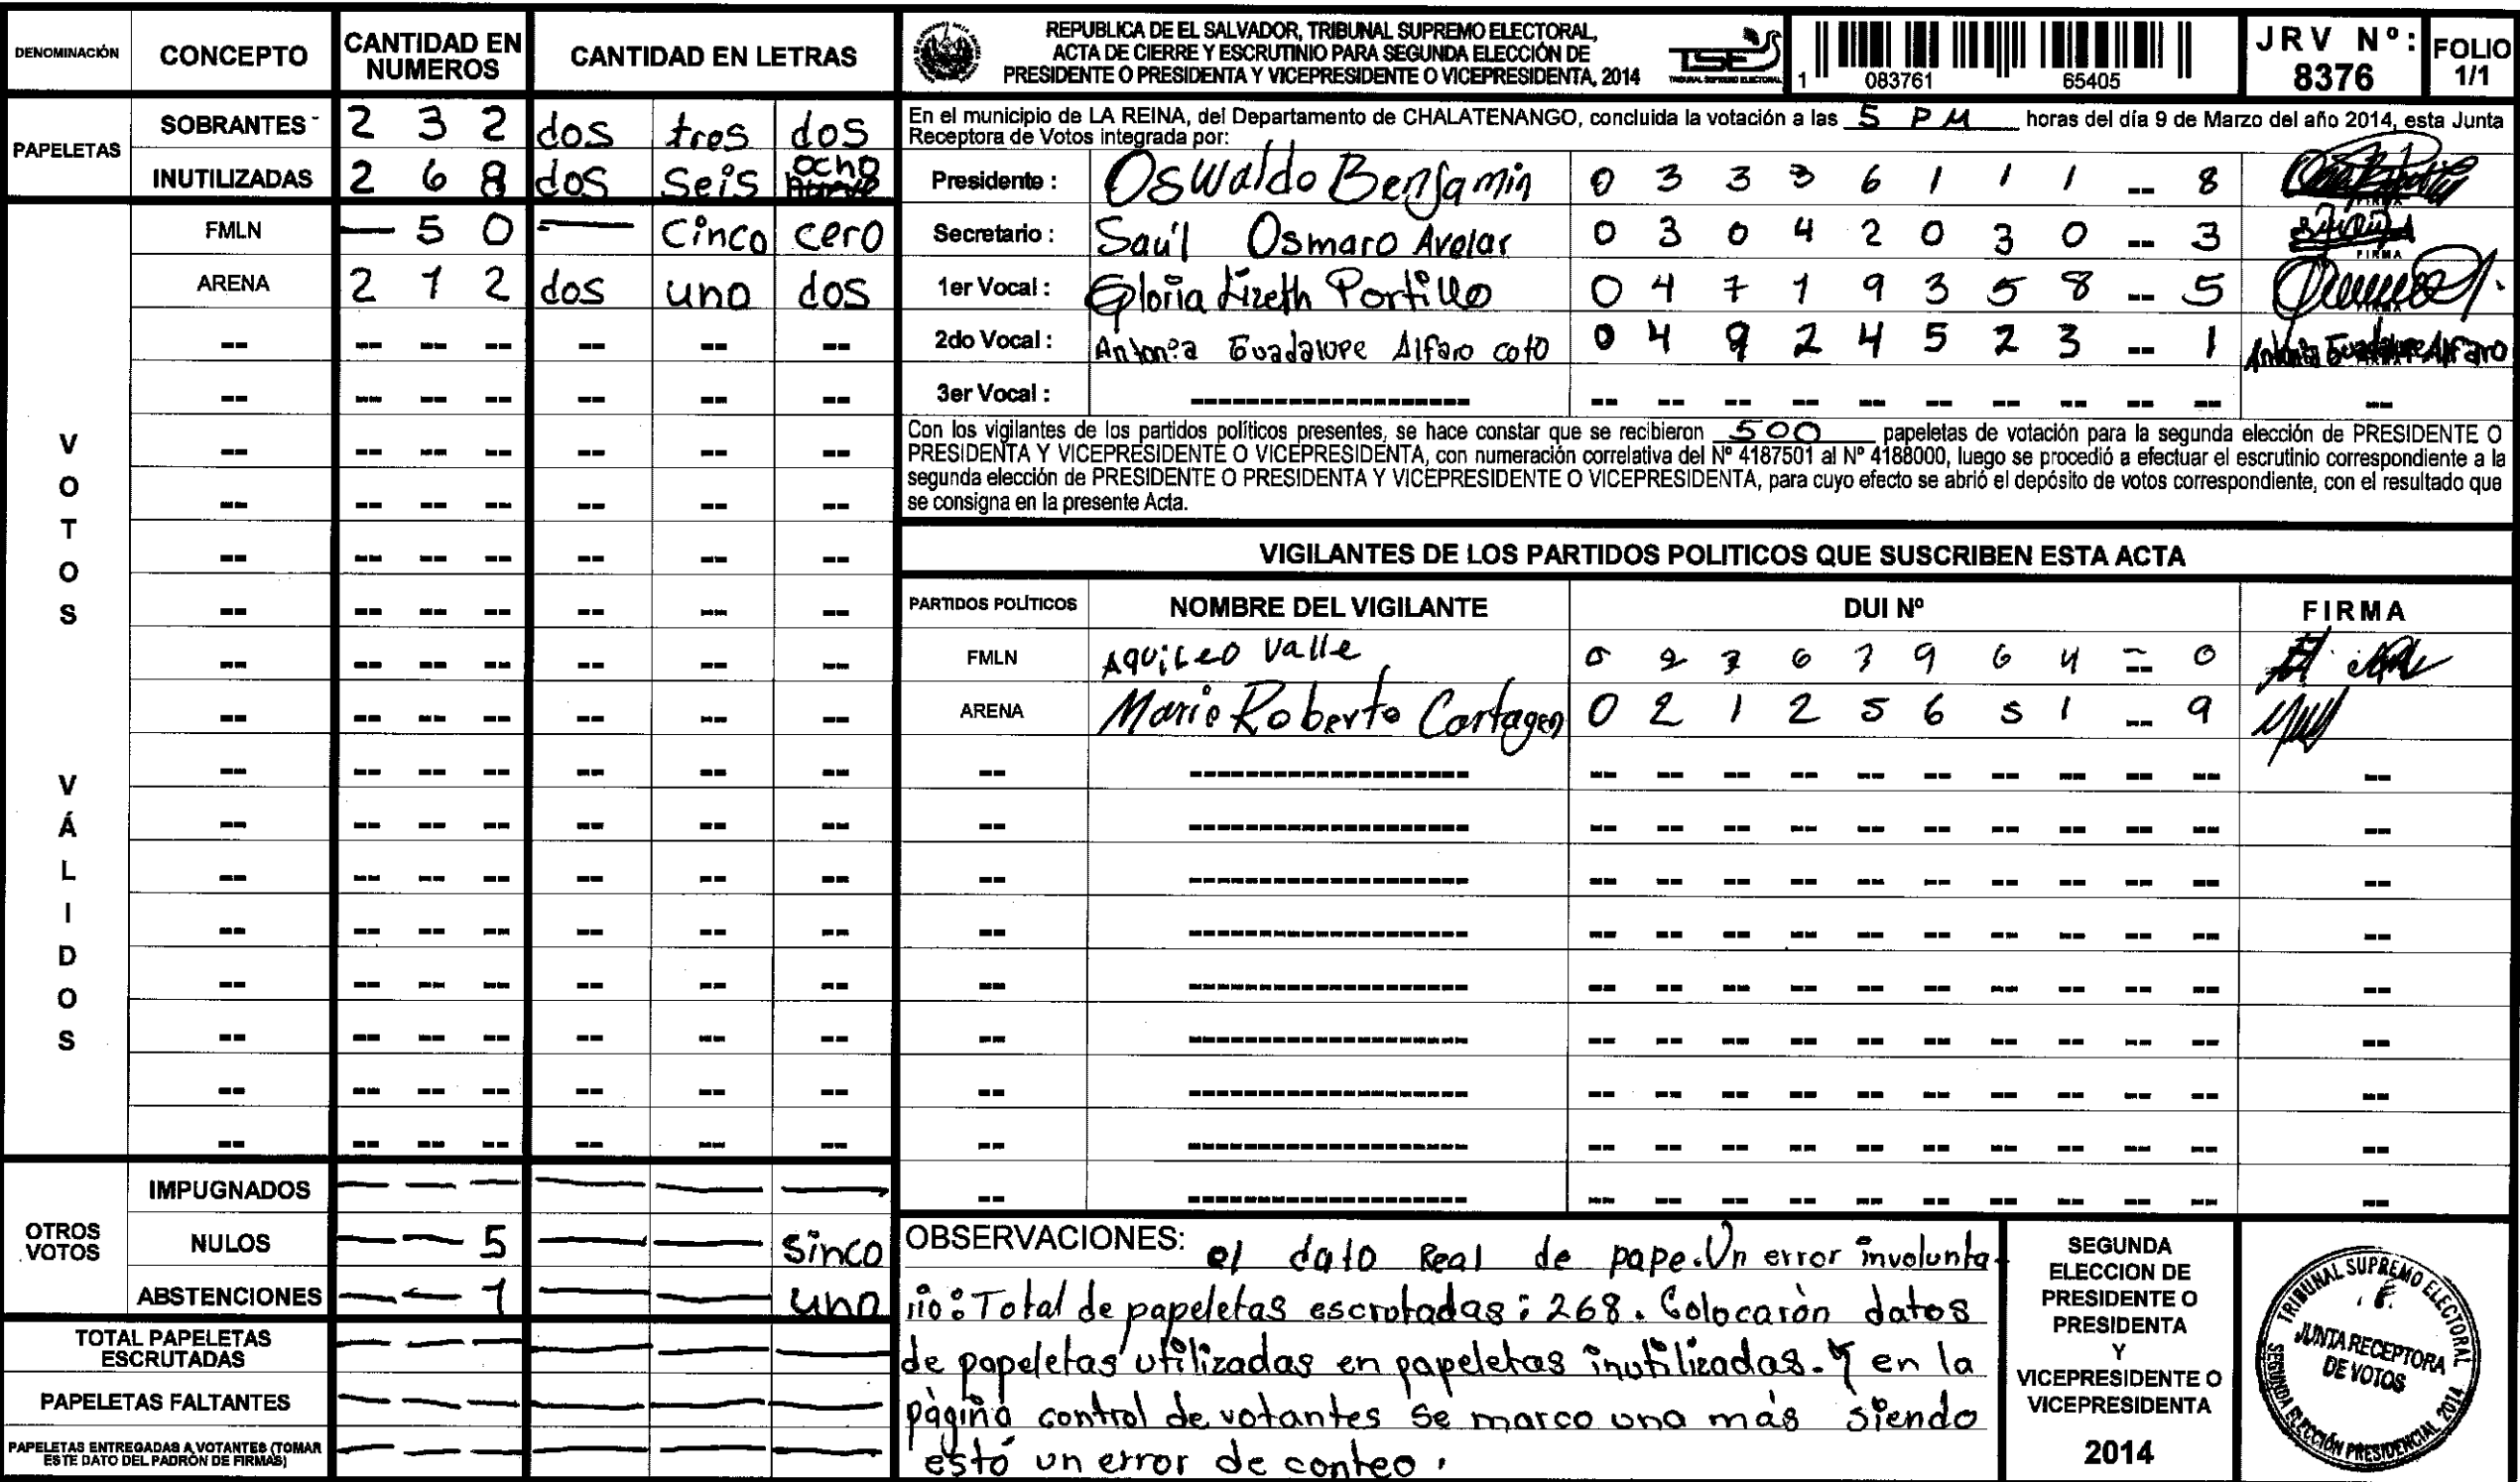 DENOMINACIÓN CONCEPTO CANTIDAD EN NUMEROS CANTIDAD EN LETRAS
PAPELETAS
SOBRANTES 2 3 2 dos tres dos
INUTILIZADAS 2 6 8 dos Seis ocho
VOTOS VÁLIDOS
FMLN — 5 0 — Cinco cero
ARENA 2 1 2 dos uno dos
OTROS VOTOS
IMPUGNADOS — — — — — —
NULOS — — 5 — — sinco
ABSTENCIONES — — 1 — — uno
TOTAL PAPELETAS ESCRUTADAS — — — — — —
PAPELETAS FALTANTES — — — — — —
PAPELETAS ENTREGADAS A VOTANTES (TOMAR ESTE DATO DEL PADRÓN DE FIRMAS) — — — — — —
REPUBLICA DE EL SALVADOR, TRIBUNAL SUPREMO ELECTORAL,
ACTA DE CIERRE Y ESCRUTINIO PARA SEGUNDA ELECCIÓN DE
PRESIDENTE O PRESIDENTA Y VICEPRESIDENTE O VICEPRESIDENTA, 2014
TSE
TRIBUNAL SUPREMO ELECTORAL
1 083761 65405
JRV Nº: 8376
FOLIO 1/1
En el municipio de LA REINA, del Departamento de CHALATENANGO, concluida la votación a las 5 PM horas del día 9 de Marzo del año 2014, esta Junta
Receptora de Votos integrada por:
Presidente : Oswaldo Benjamin 0 3 3 3 6 1 1 1 -- 8
Secretario : Saúl Osmaro Avelar 0 3 0 4 2 0 3 0 -- 3
1er Vocal : Gloria Lizeth Portillo 0 4 7 1 9 3 5 8 -- 5
2do Vocal : Antonia Guadalupe Alfaro coto 0 4 9 2 4 5 2 3 -- 1 Antonia Guadalupe Alfaro
3er Vocal :
FIRMA
Con los vigilantes de los partidos políticos presentes, se hace constar que se recibieron 500 papeletas de votación para la segunda elección de PRESIDENTE O
PRESIDENTA Y VICEPRESIDENTE O VICEPRESIDENTA, con numeración correlativa del Nº 4187501 al Nº 4188000, luego se procedió a efectuar el escrutinio correspondiente a la
segunda elección de PRESIDENTE O PRESIDENTA Y VICEPRESIDENTE O VICEPRESIDENTA, para cuyo efecto se abrió el depósito de votos correspondiente, con el resultado que
se consigna en la presente Acta.
VIGILANTES DE LOS PARTIDOS POLITICOS QUE SUSCRIBEN ESTA ACTA
PARTIDOS POLÍTICOS NOMBRE DEL VIGILANTE DUI Nº FIRMA
FMLN Aquileo Valle
ARENA Mario Roberto Cartagen 0 2 1 2 5 6 5 1 -- 9
OBSERVACIONES: el dato Real de pape. Un error involunta-
rio: Total de papeletas escrotadas: 268. Colocarón datos
de papeletas utilizadas en papeletas inutilizadas. Y en la
página control de votantes se marco una más siendo
estó un error de conteo.
SEGUNDA
ELECCION DE
PRESIDENTE O
PRESIDENTA
Y
VICEPRESIDENTE O
VICEPRESIDENTA
2014
TRIBUNAL SUPREMO ELECTORAL
JUNTA RECEPTORA
DE VOTOS
SEGUNDA ELECCIÓN PRESIDENCIAL 2014